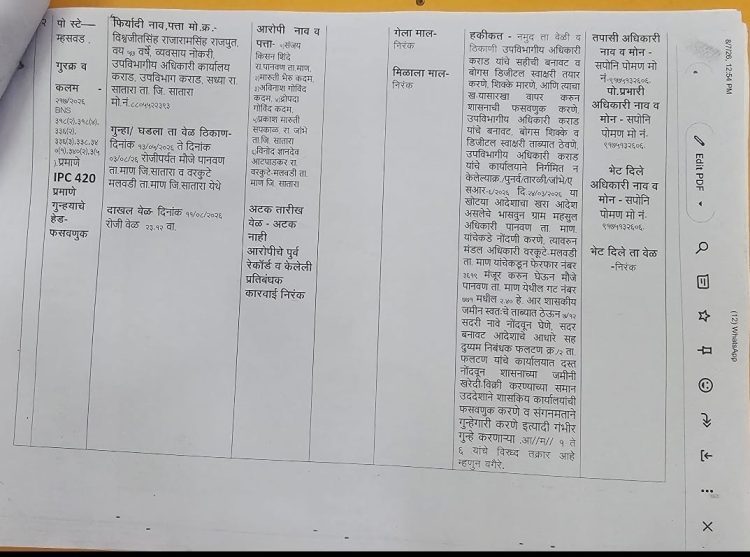 २
पो स्टे—
म्हसवड .
गुरक्र व
कलम -
२१७/२०२६
BNS
३१८(२),३१८(४),
३३६(२),
३३६(३),३३८,३४
०(१),३४०(२),३(५
).प्रमाणे
IPC 420
प्रमाणे
गुन्हयाचे
हेड-
फसवणुक
फिर्यादी नाव,पत्ता मो.क्र.-
विश्वजीतसिंह राजारामसिंह राजपुत,
वय ५७ वर्षे, व्यवसाय नोकरी,
उपविभागीय अधिकारी कार्यालय
कराड, उपविभाग कराड, सध्या रा.
सातारा ता. जि. सातारा
मो.नं.८८०५५२२३९३
गुन्हा/ घडला ता वेळ ठिकाण-
दिनांक १३/०५/२०२६ ते दिनांक
०३/०८/२६ रोजीपर्यंत मौजे पानवण
ता.माण जि.सातारा व वरकुटे
मलवडी ता.माण जि.सातारा येथे
दाखल वेळ- दिनांक ११/०८/२०२६
रोजी वेळ २३.१२ वा.
आरोपी नाव व
पत्ता- १)संजय
किसन शिंदे
रा.पानवण ता माण.
२)मारुती भैरु कदम.
३)अविनाश गोविंद
कदम. ४)द्रोपदा
गोविंद कदम.
५)प्रकाश मारुती
सपकाळ रा जांभे
ता.जि. सातारा
६)विनोद ज्ञानदेव
आटपाडकर रा.
वरकुटे-मलवडी ता.
माण जि. सातारा
अटक तारीख
वेळ - अटक
नाही
आरोपीचे पुर्व
रेकॉर्ड व केलेली
प्रतिबंधक
कारवाई निरंक
गेला माल-
निरंक
मिळाला माल-
निरंक
हकीकत - नमुद ता वेळी व
ठिकाणी उपविभागीय अधिकारी
कराड यांचे सहीची बनावट व
बोगस डिजीटल स्वाक्षरी तयार
करणे, शिक्के मारणे, आणि त्याचा
खऱ्यासारखा वापर करुन
शासनाची फसवणुक करणे.
उपविभागीय अधिकारी कराड
यांचे बनावट, बोगस शिक्के व
डिजीटल स्वाक्षरी ताब्यात ठेवणे.
उपविभागीय अधिकारी कराड
यांचे कार्यालयाने निर्गमित न
केलेल्याक्र./पुनर्व/तारळी/जांभे/ए
सआर-६/२०२६ दि.२४/०३/२०२६ या
खोटया आदेशाचा खरा आदेश
असलेचे भासवुन ग्राम महसुल
अधिकारी पानवण ता. माण
यांचेकडे नोंदणी करणे, त्यावरुन
मंडल अधिकारी वरकुटे-मलवडी
ता. माण यांचेकडून फेरफार नंबर
३६१९ मंजूर करुन घेऊन मौजे
पानवण ता. माण येथील गट नंबर
७७१ मधील २.४० हे. आर शासकीय
जमीन स्वतःचे ताब्यात ठेऊन ७/१२
सदरी नावे नोंदवून घेणे, सदर
बनावट आदेशाचे आधारे सह
दुय्यम निबंधक फलटण क्र./२ ता.
फलटण यांचे कार्यालयात दस्त
नोंदवून शासनाच्या जमीनी
खरेदी-विक्री करण्याच्या समान
उद्देशाने शासकिय कार्यालयांची
फसवणुक करणे व संगनमताने
गुन्हेगारी करणे इत्यादी गंभीर
गुन्हे करणाऱ्या .आ//म// १ ते
६ यांचे विरध्द तक्रार आहे
म्हणुन वगैरे.
तपासी अधिकारी
नाव व मोन -
सपोनि पोमण मो
नं-९७७५१३२६०६.
पो.प्रभारी
अधिकारी नाव व
मोन - सपोनि
पोमण मो नं-
९७७५१३२६०६.
भेट दिले
अधिकारी नाव व
मोन - सपोनि
पोमण मो नं.
९१७५१३२६०६.
भेट दिले ता वेळ
-निरंक
8/7/26, 12:54 PM
Edit PDF
(12) WhatsApp